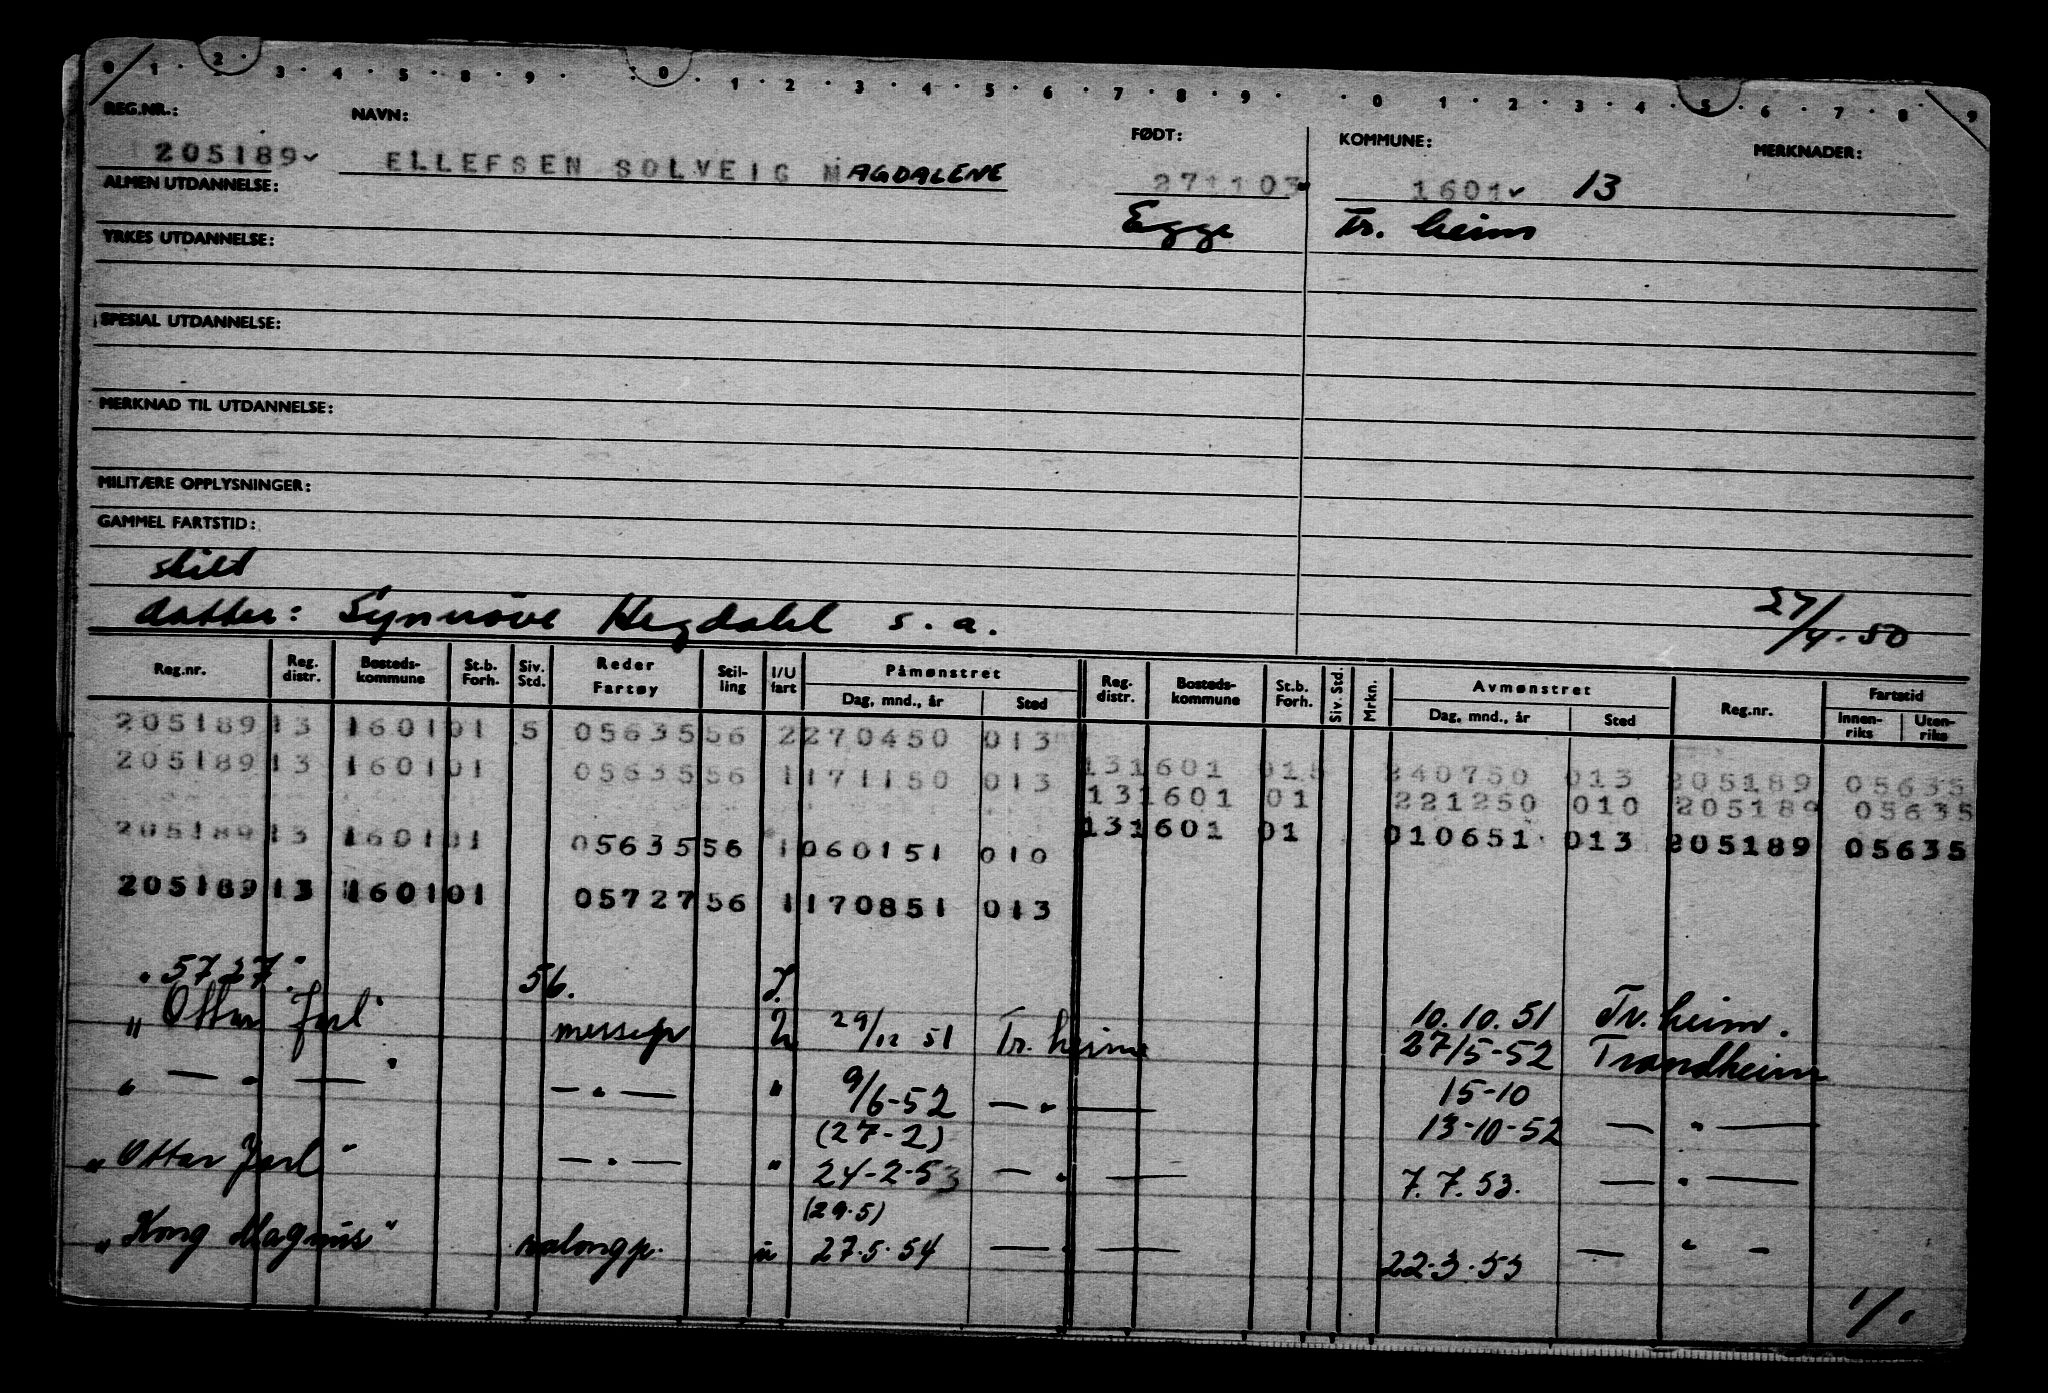 0 1 2 3 4 5 8 9 0 1 2 3 4 5 6 7 8 9 0 1 2 3 4 5 6 7 8 9
REG.NR.: NAVN: FØDT: KOMMUNE: MERKNADER:
205189 ELLEFSEN SOLVEIG MAGDALENE 271103 1601 13
ALMEN UTDANNELSE:
Egge Tr. heim
YRKES UTDANNELSE:
SPESIAL UTDANNELSE:
MERKNAD TIL UTDANNELSE:
MILITÆRE OPPLYSNINGER:
GAMMEL FARTSTID:
skilt
datter: Synnöve Hegdahl s.a. 27/4.50
Reg.nr. Reg. distr. Bosteds-kommune St.b. Forh. Siv. Std. Reder Fartøy Stil-ling I/U fart Påmønstret Dag, mnd., år Sted Reg. distr. Bosteds-kommune St.b. Forh. Siv. Std. Mrkn. Avmønstret Dag, mnd., år Sted Reg.nr. Fartstid Innen-riks Uten-riks
205189 13 1601 01 5 05635 56 2 270450 013
131601 015 240750 013 205189 05635
205189 13 1601 01 05635 56 1 171150 013
131601 01 221250 010 205189 05635
205189 13 1601 01 05635 56 1 060151 010
131601 01 010651 013 205189 05635
205189 13 1601 01 05727 56 1 170851 013
" 5727" 56. 10.10.51 Tr. heim.
" Ottar Jarl" messep 29/12 51 Tr. heim 27/5-52 Trondheim
" — " — " — " — " 9/6-52 — " — 15-10
13-10-52 — " —
(27-2)
" Ottar Jarl" — " — " 24-2-53 — " — 7.7.53. — " —
(29.5)
" Kong Magnus" salongp. u 27.5.54 — " — 22-3.53 — " —
1/1